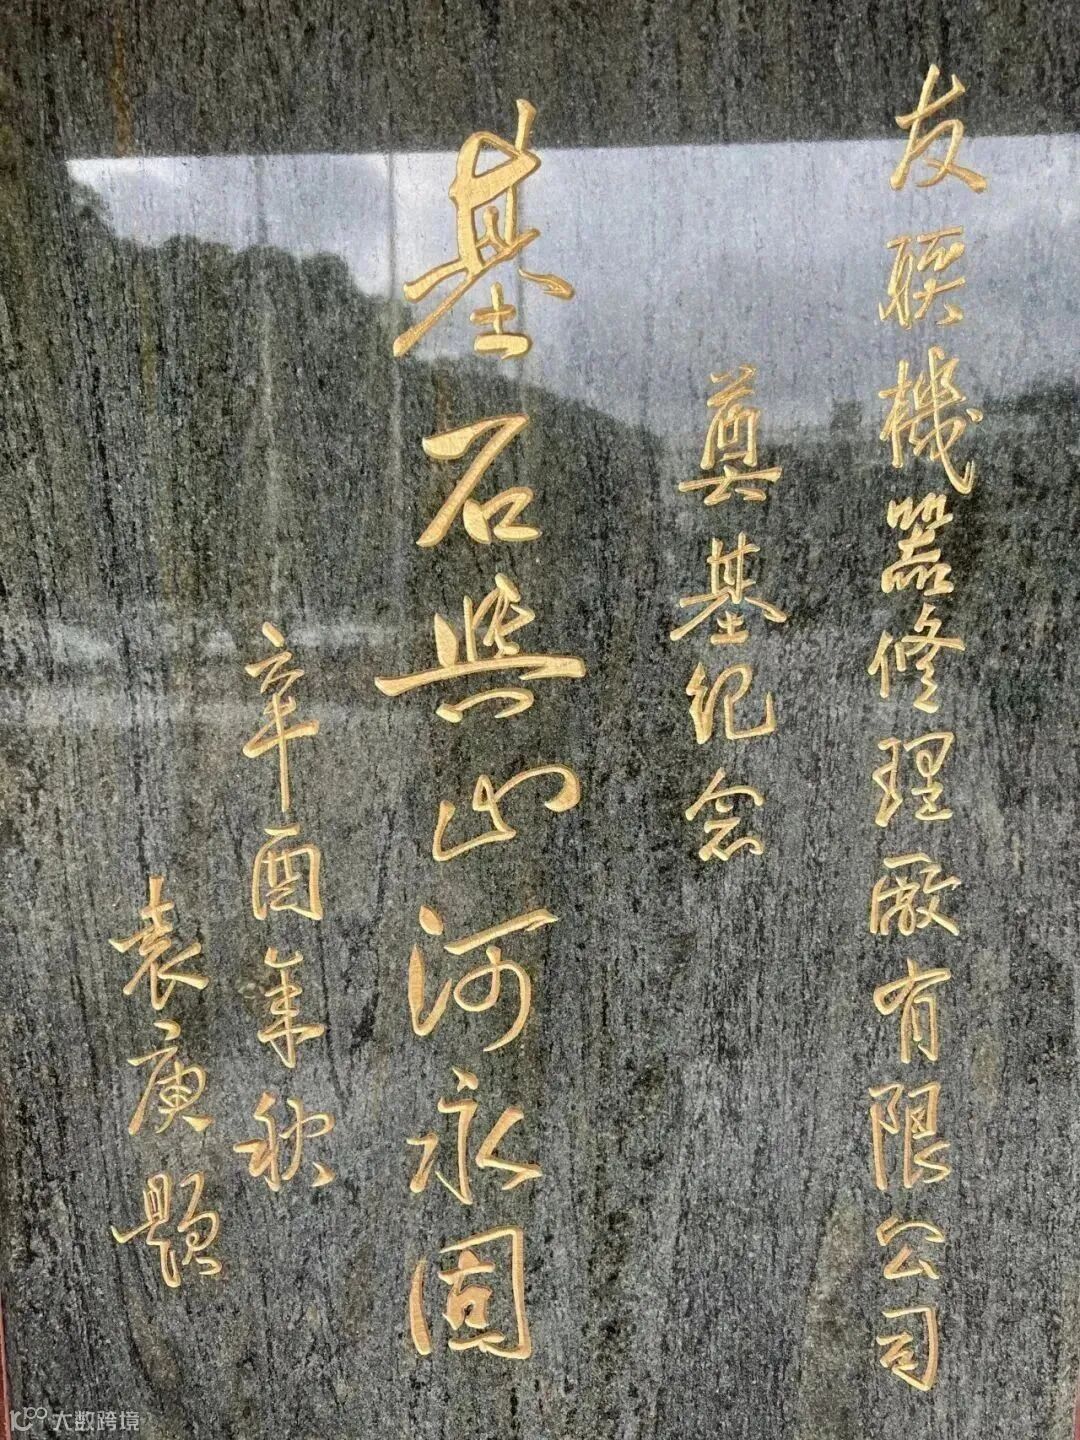 友聯機器修理厰有限公司
奠基紀念
基石與山河永固
辛酉年秋
袁庚題
大数跨境